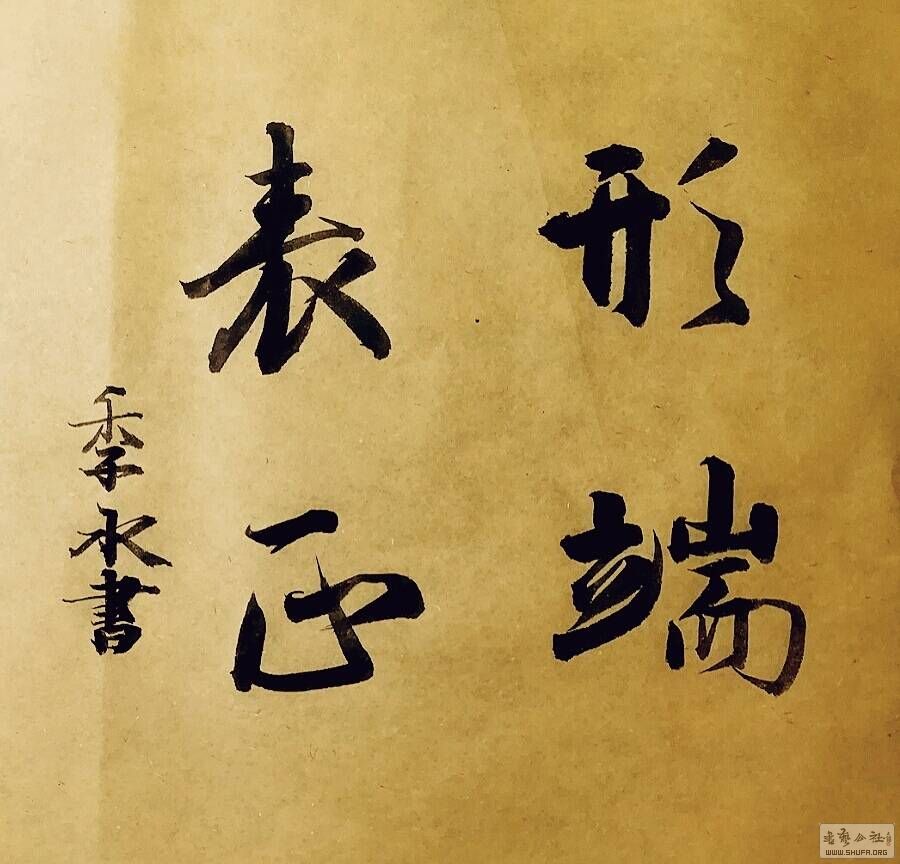 形端
表正
季水書
書藝公社
WWW.SHUFA.ORG